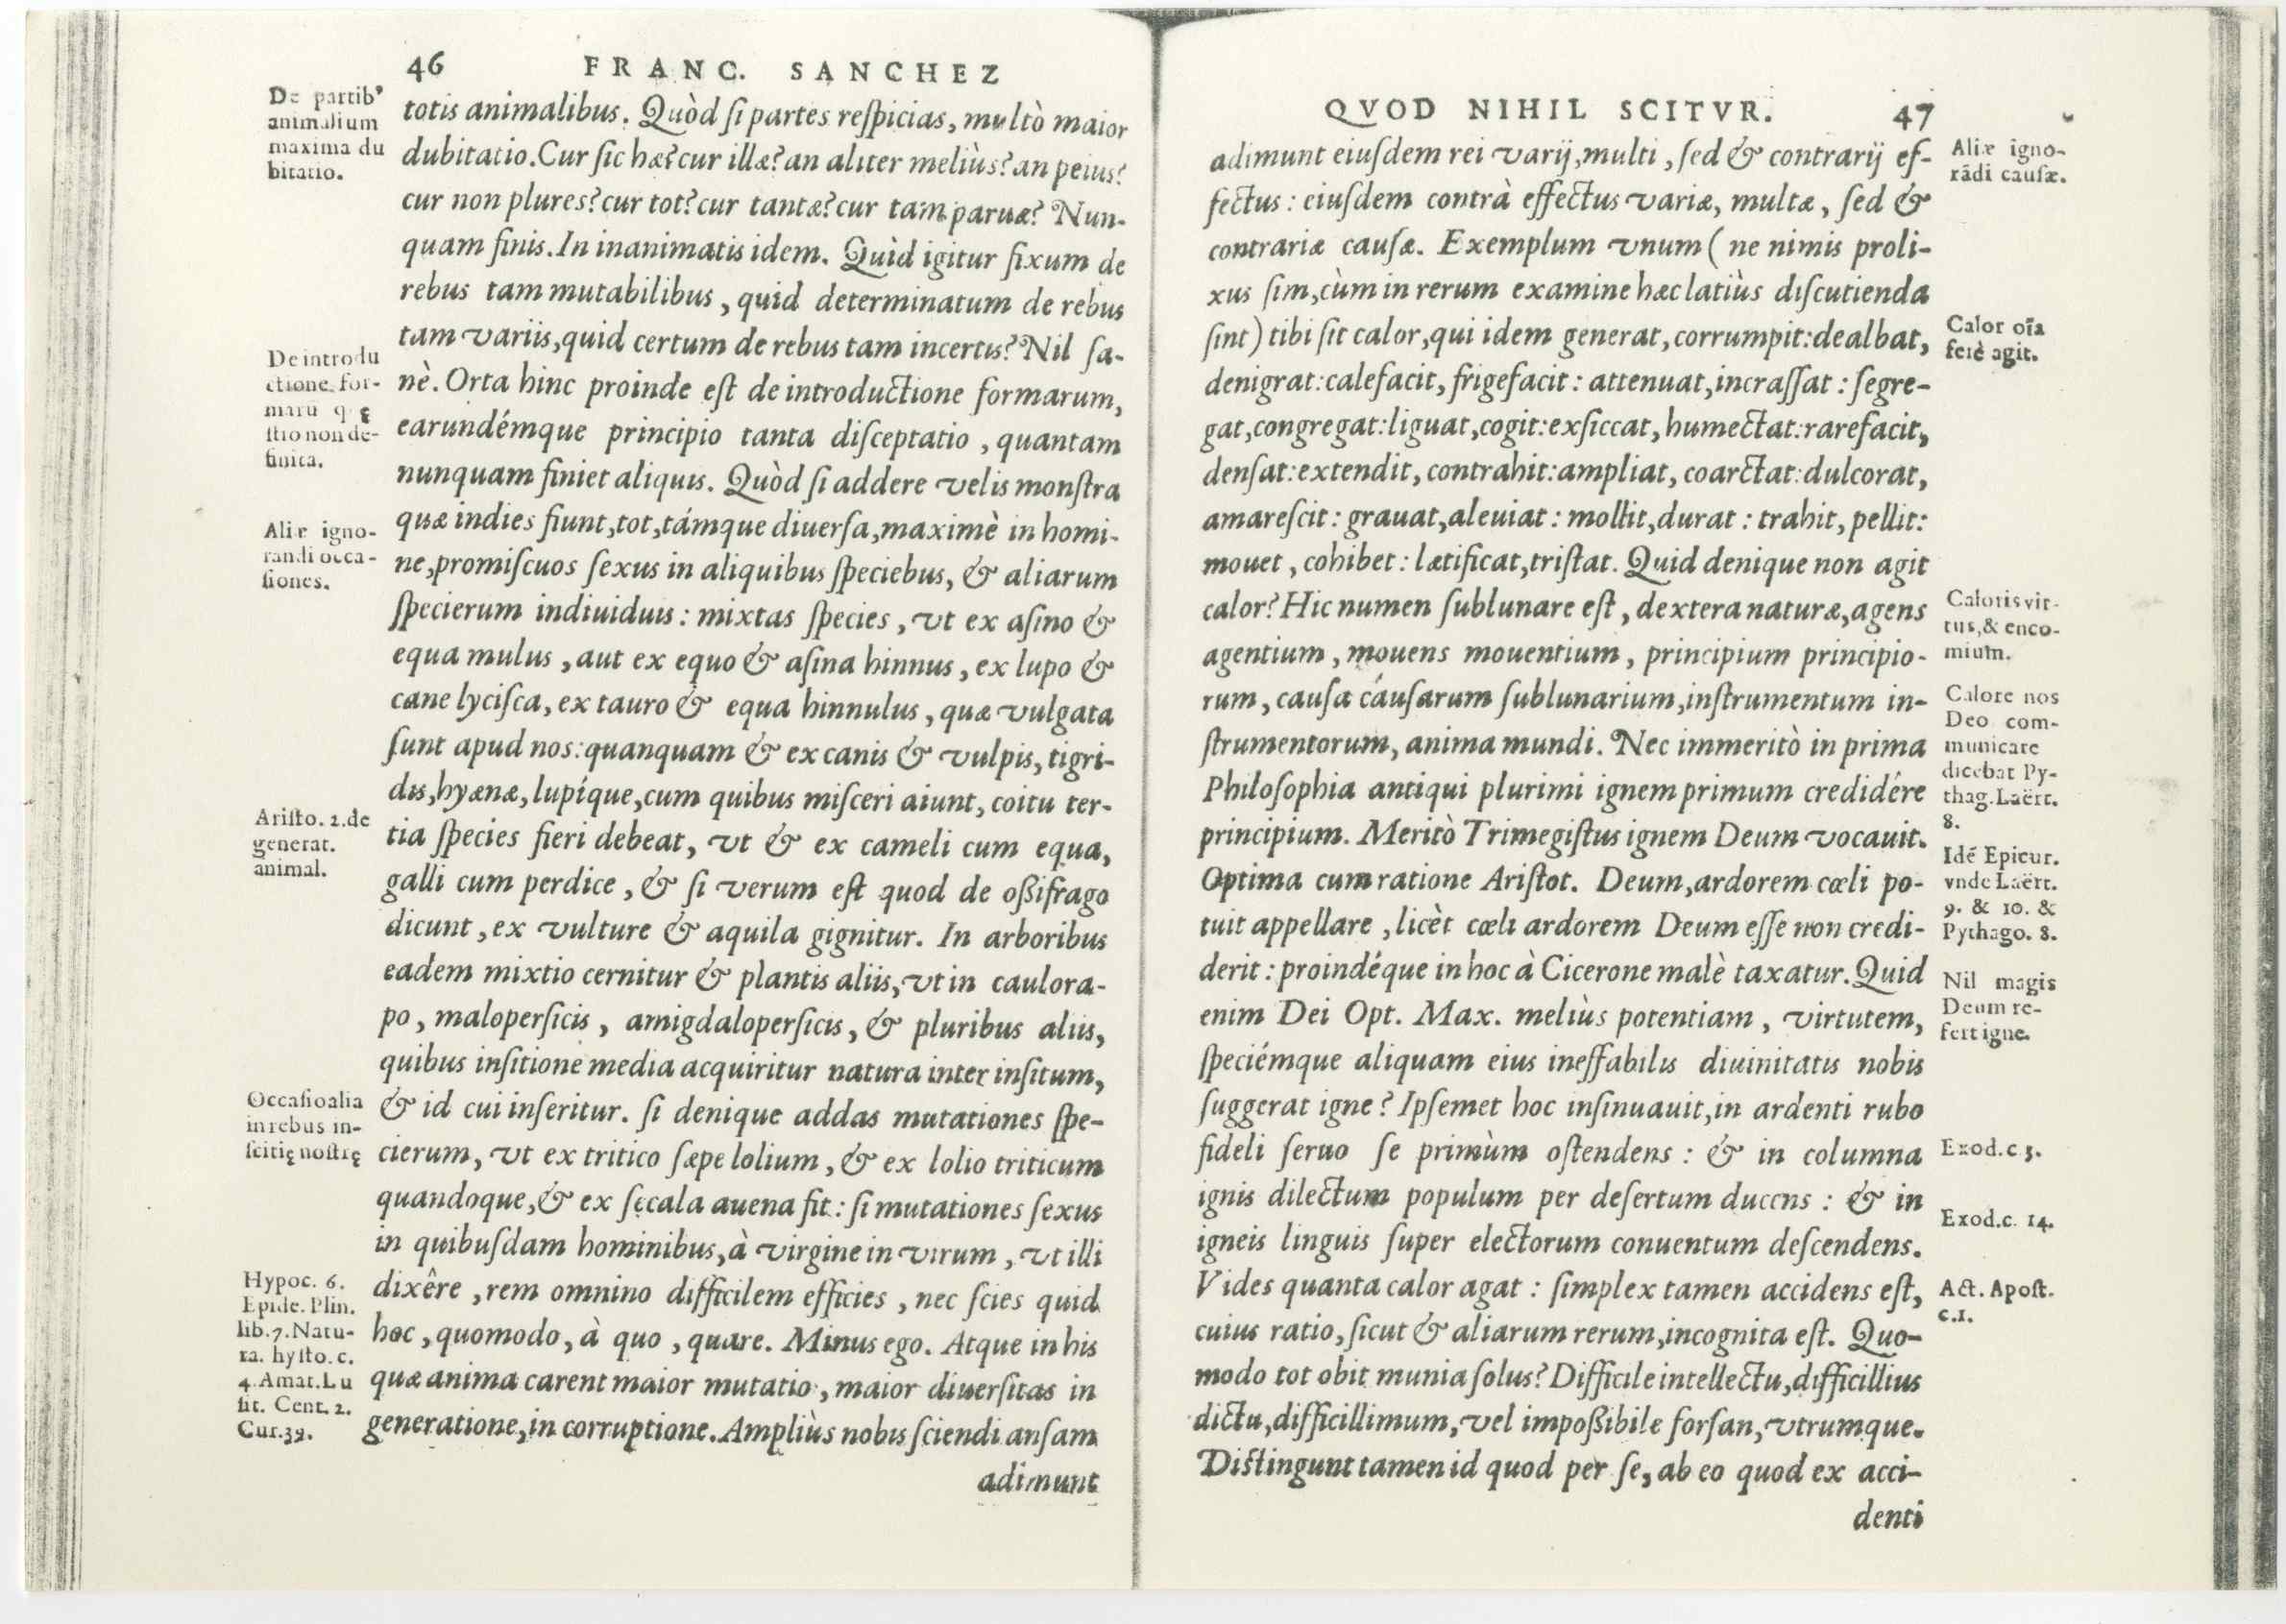 46 FRANC. SANCHEZ
De partib⁹
animalium
maxima du
bitatio.
totis animalibus. Quòd si partes respicias, multò maior
dubitatio. Cur sic hæ? cur illæ? an aliter meliùs? an peius?
cur non plures? cur tot? cur tantæ? cur tam paruæ? Nun-
quam finis. In inanimatis idem. Quid igitur fixum de
rebus tam mutabilibus, quid determinatum de rebus
tam variis, quid certum de rebus tam incertis? Nil sa-
De introdu
ctione for-
marū quę
stio non de-
finita.
nè. Orta hinc proinde est de introductione formarum,
earundémque principio tanta disceptatio, quantam
nunquam finiet aliquis. Quòd si addere velis monstra
Aliæ igno-
randi occa-
siones.
quæ indies fiunt, tot, támque diuersa, maximè in homi-
ne, promiscuos sexus in aliquibus speciebus, & aliarum
specierum indiuiduis: mixtas species, vt ex asino &
equa mulus, aut ex equo & asina hinnus, ex lupo &
cane lycisca, ex tauro & equa hinnulus, quæ vulgata
sunt apud nos: quanquam & ex canis & vulpis, tigri-
dis, hyænæ, lupíque, cum quibus misceri aiunt, coitu ter-
Aristo. 2. de
generat.
animal.
tia species fieri debeat, vt & ex cameli cum equa,
galli cum perdice, & si verum est quod de ossifrago
dicunt, ex vulture & aquila gignitur. In arboribus
eadem mixtio cernitur & plantis aliis, vt in caulora-
po, malopersicis, amigdalopersicis, & pluribus aliis,
quibus insitione media acquiritur natura inter insitum,
Occasio alia
in rebus in-
scitię nostrę
& id cui inseritur. si denique addas mutationes spe-
cierum, vt ex tritico sæpe lolium, & ex lolio triticum
quandoque, & ex secala auena fit: si mutationes sexus
in quibusdam hominibus, à virgine in virum, vt illi
Hypoc. 6.
Epide. Plin.
lib. 7. Natu-
ra. hysto. c.
4. Amat. Lu
sit. Cent. 2.
Cur. 39.
dixêre, rem omnino difficilem efficies, nec scies quid
hoc, quomodo, à quo, quare. Minus ego. Atque in his
quæ anima carent maior mutatio, maior diuersitas in
generatione, in corruptione. Ampliùs nobis sciendi ansam
adimunt
QVOD NIHIL SCITVR. 47
adimunt eiusdem rei varij, multi, sed & contrarij ef-
fectus: eiusdem contrà effectus variæ, multæ, sed &
contrariæ causæ. Exemplum vnum (ne nimis proli-
xus sim, cùm in rerum examine hæc latiùs discutienda
sint) tibi sit calor, qui idem generat, corrumpit: dealbat,
denigrat: calefacit, frigefacit: attenuat, incrassat: segre-
gat, congregat: liguat, cogit: exsiccat, humectat: rarefacit,
densat: extendit, contrahit: ampliat, coarctat: dulcorat,
amarescit: grauat, aleuiat: mollit, durat: trahit, pellit:
mouet, cohibet: lætificat, tristat. Quid denique non agit
calor? Hic numen sublunare est, dextera naturæ, agens
agentium, mouens mouentium, principium principio-
rum, causa causarum sublunarium, instrumentum in-
strumentorum, anima mundi. Nec immeritò in prima
Philosophia antiqui plurimi ignem primum credidére
principium. Meritò Trimegistus ignem Deum vocauit.
Optima cum ratione Aristot. Deum, ardorem cœli po-
tuit appellare, licèt cœli ardorem Deum esse non credi-
derit: proindéque in hoc à Cicerone malè taxatur. Quid
enim Dei Opt. Max. meliùs potentiam, virtutem,
speciémque aliquam eius ineffabilis diuinitatis nobis
suggerat igne? Ipsemet hoc insinuauit, in ardenti rubo
fideli seruo se primùm ostendens: & in columna
ignis dilectum populum per desertum ducens: & in
igneis linguis super electorum conuentum descendens.
Vides quanta calor agat: simplex tamen accidens est,
cuius ratio, sicut & aliarum rerum, incognita est. Quo-
modo tot obit munia solus? Difficile intellectu, difficillius
dictu, difficillimum, vel impossibile forsan, vtrumque.
Distingunt tamen id quod per se, ab eo quod ex acci-
denti
Aliæ igno-
rādi causæ.
Calor oīa
ferè agit.
Caloris vir-
tus, & enco-
mium.
Calore nos
Deo com-
municare
dicebat Py-
thag. Laërt.
8.
Idē Epicur.
vnde Laërt.
9. & 10. &
Pythago. 8.
Nil magis
Deum re-
fert igne.
Exod. c 3.
Exod. c. 14.
Act. Apost.
c. 1.